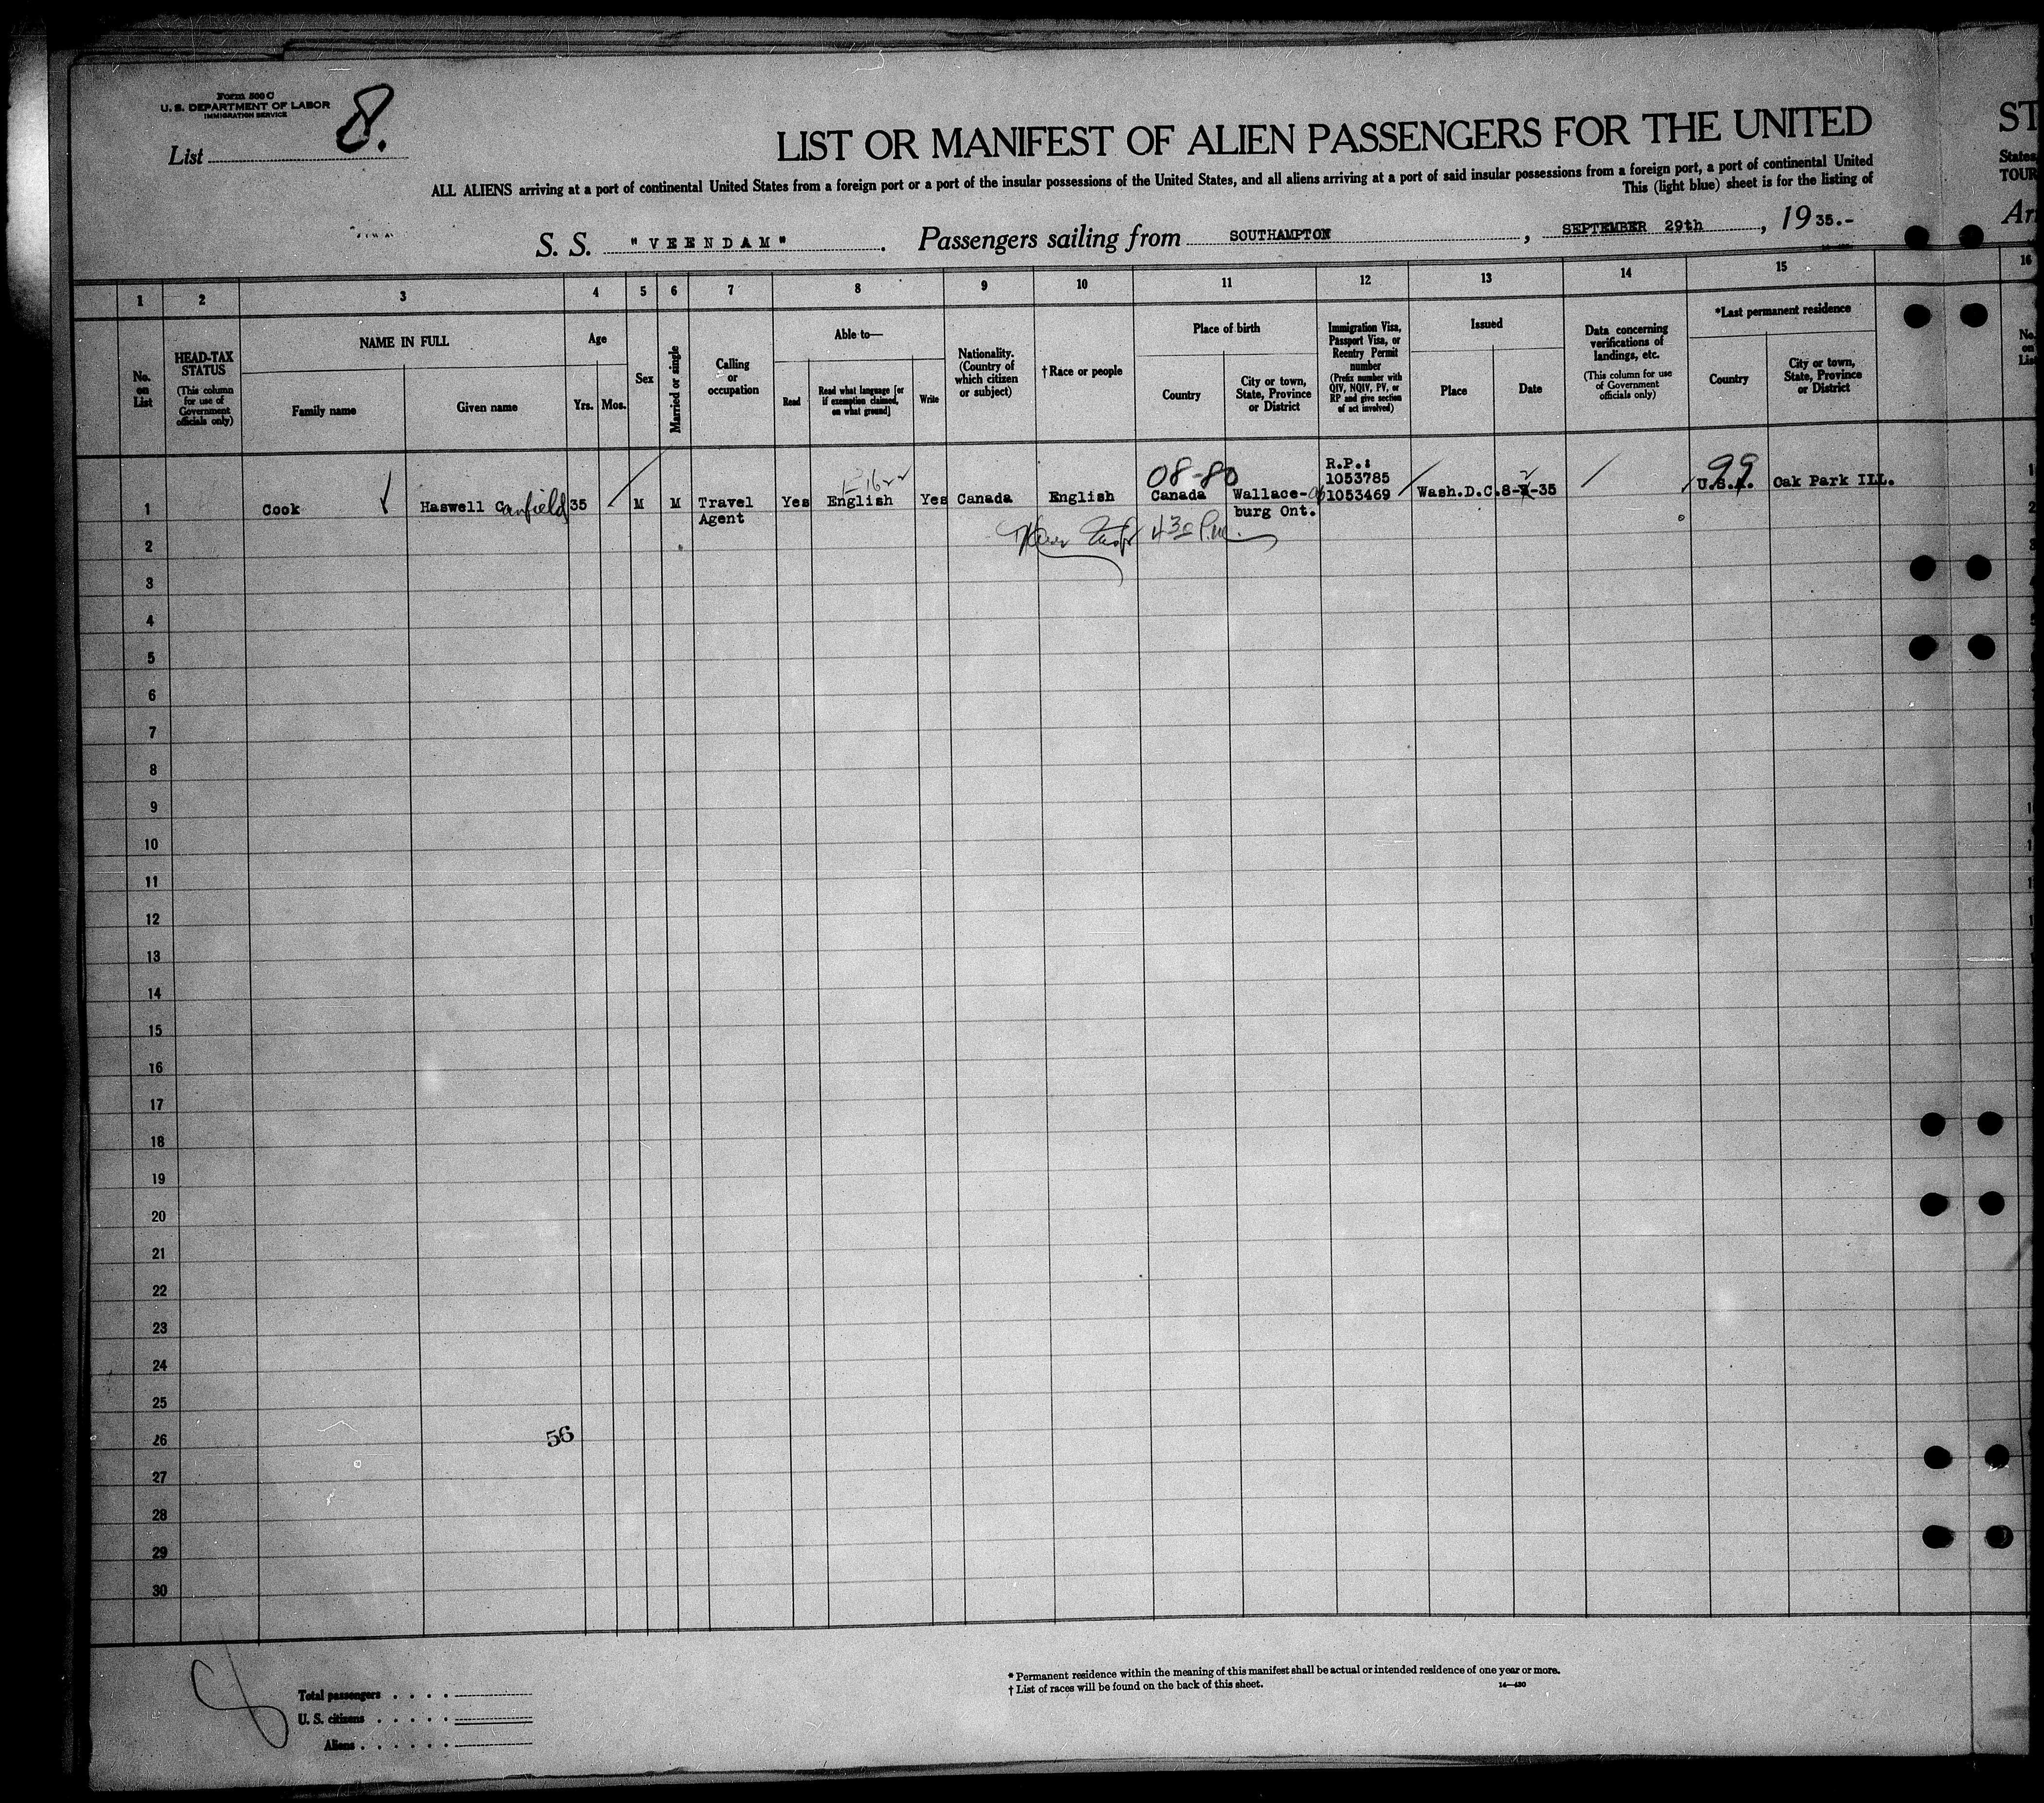 Form 500 C
U. S. DEPARTMENT OF LABOR
IMMIGRATION SERVICE
List 8.
LIST OR MANIFEST OF ALIEN PASSENGERS FOR THE UNITED
ST
ALL ALIENS arriving at a port of continental United States from a foreign port or a port of the insular possessions of the United States, and all aliens arriving at a port of said insular possessions from a foreign port, a port of continental United
States
This (light blue) sheet is for the listing of
TOUR
S. S. "VEENDAM". Passengers sailing from SOUTHAMPTON, SEPTEMBER 29th, 19 35.-
Ar
1 2 3 4 5 6 7 8 9 10 11 12 13 14 15 16
No. on List
HEAD-TAX STATUS
(This column for use of Government officials only)
NAME IN FULL
Family name
Given name
Age
Yrs. Mos.
Sex
Married or single
Calling or occupation
Able to—
Read
Read what language [or if exemption claimed, on what ground]
Write
Nationality. (Country of which citizen or subject)
† Race or people
Place of birth
Country
City or town, State, Province or District
Immigration Visa, Passport Visa, or Reentry Permit number
(Prefix number with QIV, NQIV, PV, or RP and give section of act involved)
Issued
Place
Date
Data concerning verifications of landings, etc.
(This column for use of Government officials only)
*Last permanent residence
Country
City or town, State, Province or District
No. on List
08-80
R.P.:
1053785
99
1 Cook Haswell Canfield 35 M M Travel Yes English Yes Canada English Canada Wallace- 1053469 Wash.D.C. 8- -35 U.S.A. Oak Park ILL.
Agent burg Ont.
4 30 P.m.
2
3
4
5
6
7
8
9
10
11
12
13
14
15
16
17
18
19
20
21
22
23
24
25
26
56
27
28
29
30
Total passengers
U. S. citizens
Aliens
* Permanent residence within the meaning of this manifest shall be actual or intended residence of one year or more.
† List of races will be found on the back of this sheet.
14—430